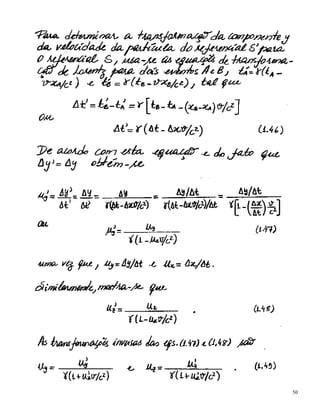 Para determinar a transformação da componente y
da velocidade da partícula do referencial S' para
o referencial S, usa-se as equações de transforma-
ção de Lorentz para dois eventos A e B, t'A = γ(tA -
vxA/c²) e t'B = γ(tB - vxB/c²), tal que
Δt' = t'B - t'A = γ[tB - tA - (xB - xA)v/c²]
ou
Δt' = γ(Δt - Δxv/c²) (1.46)
De acordo com esta equação e do fato que
Δy' = Δy obtém-se
u'y = Δy'/Δt' = Δy/Δt' = Δy/γ(Δt - Δxv/c²) = Δy/Δt/γ(Δt - Δxv/c²)/Δt = Δy/Δt/γ[1 - (Δx/Δt) v/c²]
ou
u'y = uy/γ(1 - uxv/c²) (1.47)
uma vez que, uy = Δy/Δt e ux = Δx/Δt.
Similarmente, mostra-se que
u'z = uz/γ(1 - uxv/c²) . (1.48)
As transformações inversas das eqs. (1.47) e (1.48) são
uy = u'y/γ(1 + u'xv/c²) e uz = u'z/γ(1 + u'xv/c²) . (1.49)
50